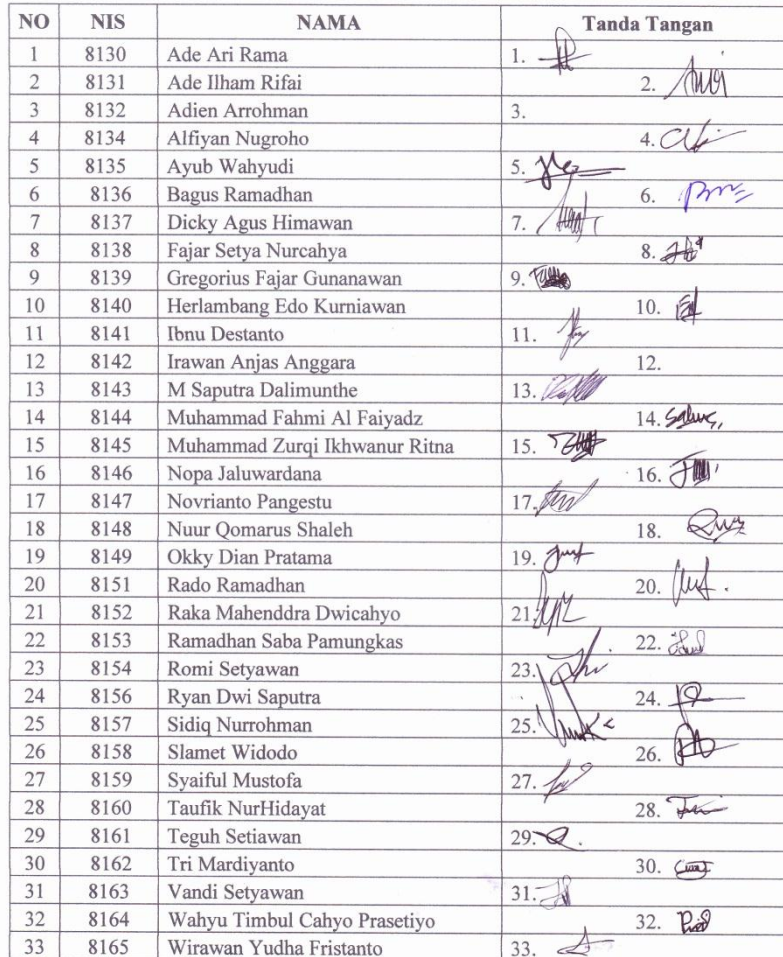 NO NIS NAMA Tanda Tangan
1 8130 Ade Ari Rama 1.
2 8131 Ade Ilham Rifai 2.
3 8132 Adien Arrohman 3.
4 8134 Alfiyan Nugroho 4.
5 8135 Ayub Wahyudi 5.
6 8136 Bagus Ramadhan 6.
7 8137 Dicky Agus Himawan 7.
8 8138 Fajar Setya Nurcahya 8.
9 8139 Gregorius Fajar Gunanawan 9.
10 8140 Herlambang Edo Kurniawan 10.
11 8141 Ibnu Destanto 11.
12 8142 Irawan Anjas Anggara 12.
13 8143 M Saputra Dalimunthe 13.
14 8144 Muhammad Fahmi Al Faiyadz 14.
15 8145 Muhammad Zurqi Ikhwanur Ritna 15.
16 8146 Nopa Jaluwardana 16.
17 8147 Novrianto Pangestu 17.
18 8148 Nuur Qomarus Shaleh 18.
19 8149 Okky Dian Pratama 19.
20 8151 Rado Ramadhan 20.
21 8152 Raka Mahenddra Dwicahyo 21.
22 8153 Ramadhan Saba Pamungkas 22.
23 8154 Romi Setyawan 23.
24 8156 Ryan Dwi Saputra 24.
25 8157 Sidiq Nurrohman 25.
26 8158 Slamet Widodo 26.
27 8159 Syaiful Mustofa 27.
28 8160 Taufik NurHidayat 28.
29 8161 Teguh Setiawan 29.
30 8162 Tri Mardiyanto 30.
31 8163 Vandi Setyawan 31.
32 8164 Wahyu Timbul Cahyo Prasetiyo 32.
33 8165 Wirawan Yudha Fristanto 33.